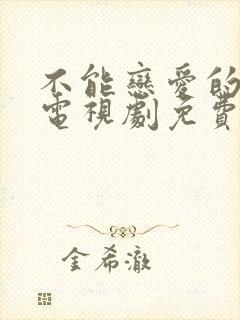 不能戀愛的
電視劇免費
金希澈